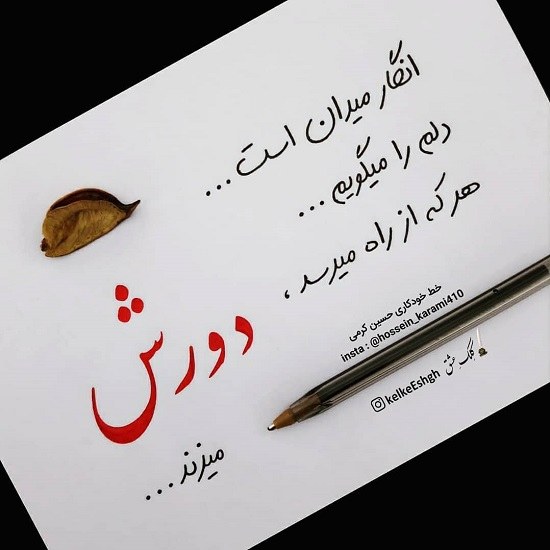 انگار میدان است...
دلم را میگویم...
هر که از راه میرسد،
دورش
میزند...
خط خودکاری حسین کرمی
insta : @hossein_karami410
کلک عشق
kelkeEshgh